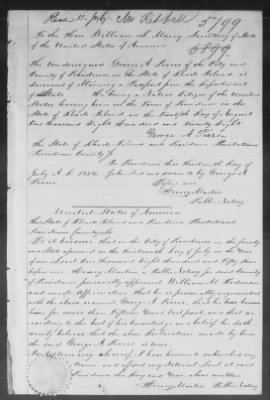 Recd 15 July
5799
To the Hon William L. Marcy Secretary of State
of the United States of America
The undersigned George A Pierce of the City and
County of Providence in the State of Rhode Island is
desirous of obtaining a Passport from the Department
of State He being a Citizen of the United
States having been born in the Town of Providence in the
State of Rhode Island on the Twelfth day of August
One thousand Eight Hundred and Twenty Eight
George A Pierce
The State of Rhode Island and Providence Plantations
Providence County Ss.
In Providence this Thirteenth day of
July A.D. 1854. Subscribed and sworn to by George A
Pierce
Before me
Henry Martin
Public Notary
United States of America
The State of Rhode Island and Providence Plantations
Providence County ss
Be it known, that in the City of Providence in the County
and State aforesaid on the Thirteenth day of July in the Year
of our Lord One thousand Eight Hundred and Fifty Four
before me, Henry Martin a Public Notary for said County
of Providence personally appeared William M.
and made that he is personally acquainted
with the above named George A Pierce, that he has known
him for more than Fifteen Years last past, and that
according to the best of his knowledge and belief he doth
verily believe that the above declaration made by him
the said George A Pierce is true.
In testimony whereof, I have hereunto subscribed my
Name and affixed my Notarial Seal at said
Providence the day and Year above written
Henry Martin Public Notary